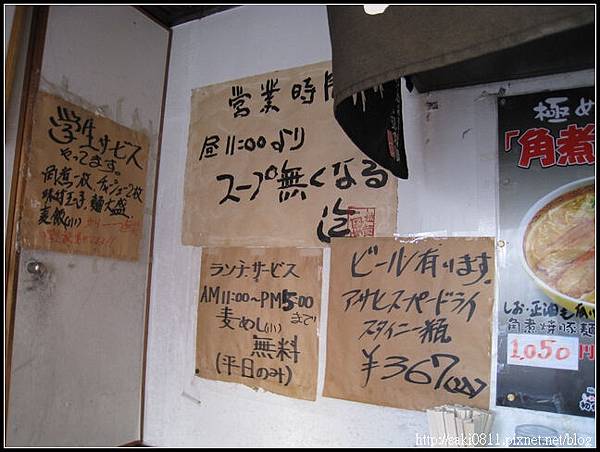 学生サービス
やってます。
角煮一枚、チャーシュー2枚
味付玉子、麺大盛、
麦飯(小)
営業時間
昼11:00より
スープ無くなる
迄
ランチサービス
AM11:00〜PM5:00
まで
麦めし(小)
無料
(平日のみ)
ビール有ります。
アサヒスーパードライ
スタイニー瓶
¥367
極め
「角煮
しお・正油も
角煮焼豚麺
1,050円
http://caki0811.pixnet.net/blog